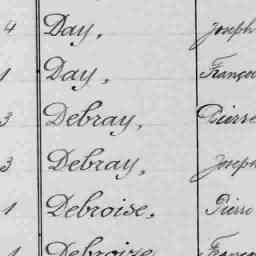 4 Day, Joseph
1 Day, Françoi
3 Debray, Pierre
3 Debray, Joseph
1 Debroise, Pierre
1 Debroize Françoi